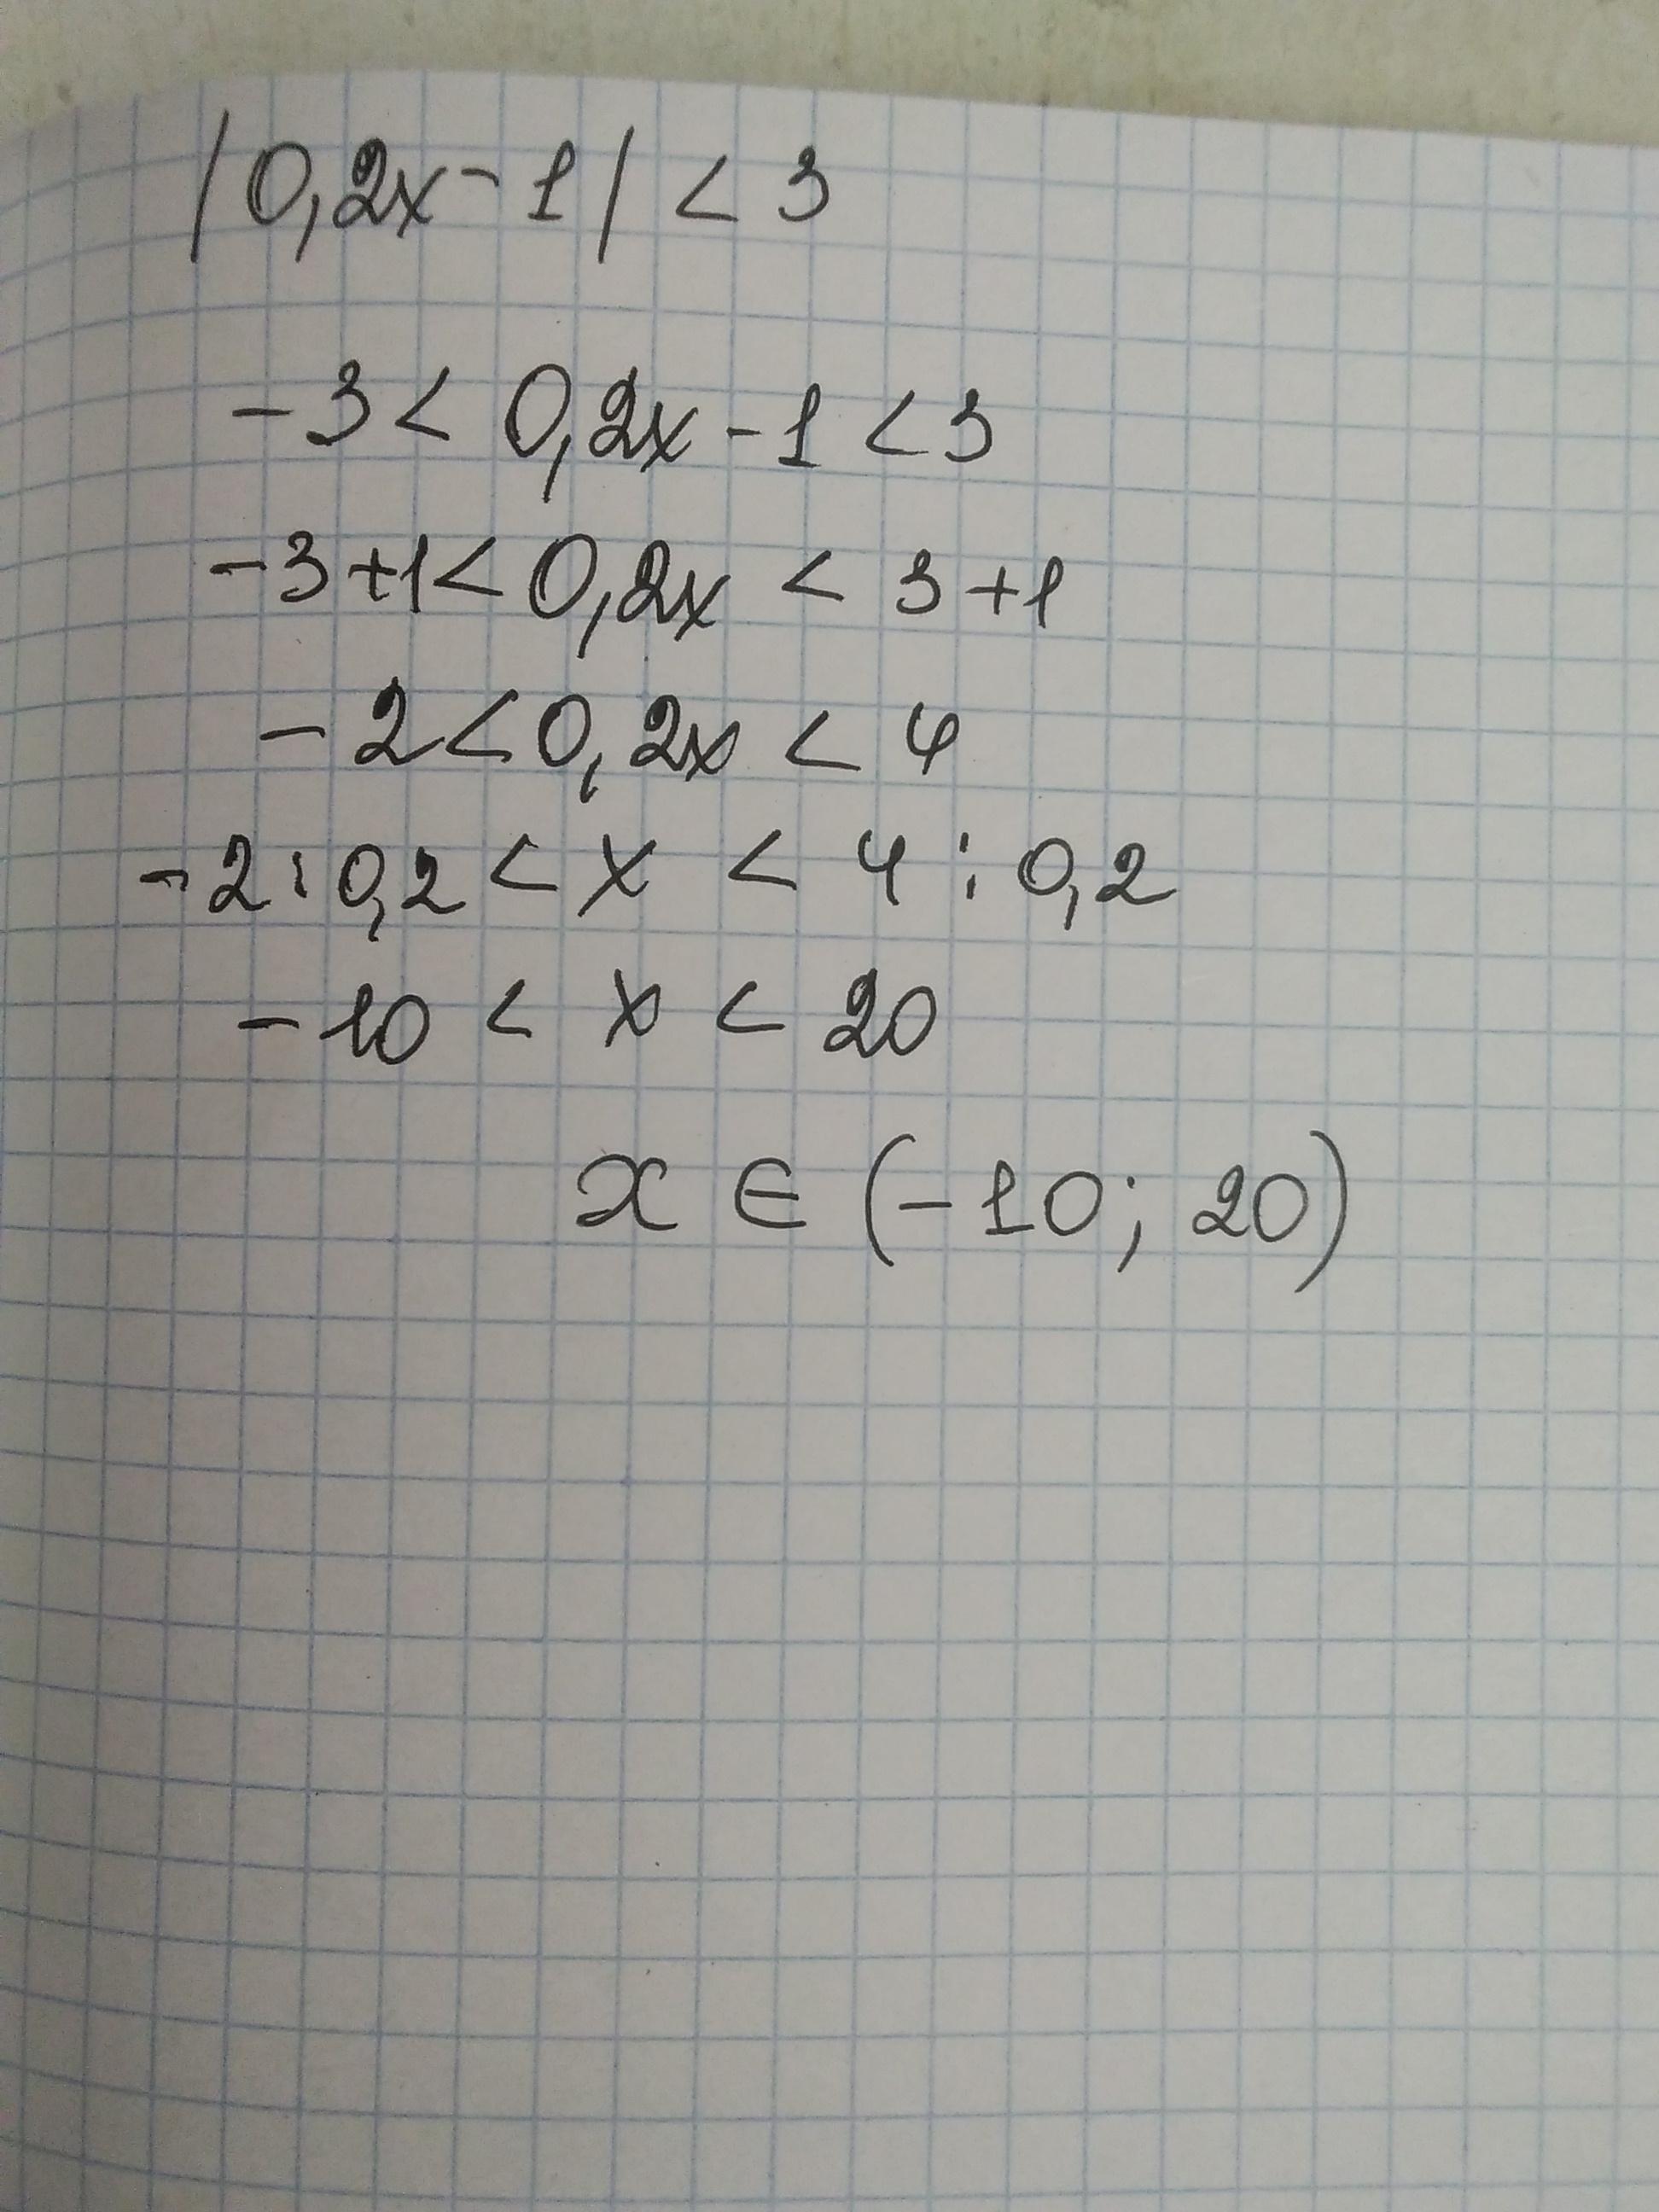 |0,2x-1| < 3
-3 < 0,2x - 1 < 3
-3+1 < 0,2x < 3+1
-2 < 0,2x < 4
-2 : 0,2 < x < 4 : 0,2
-10 < x < 20
x ∈ (-10; 20)